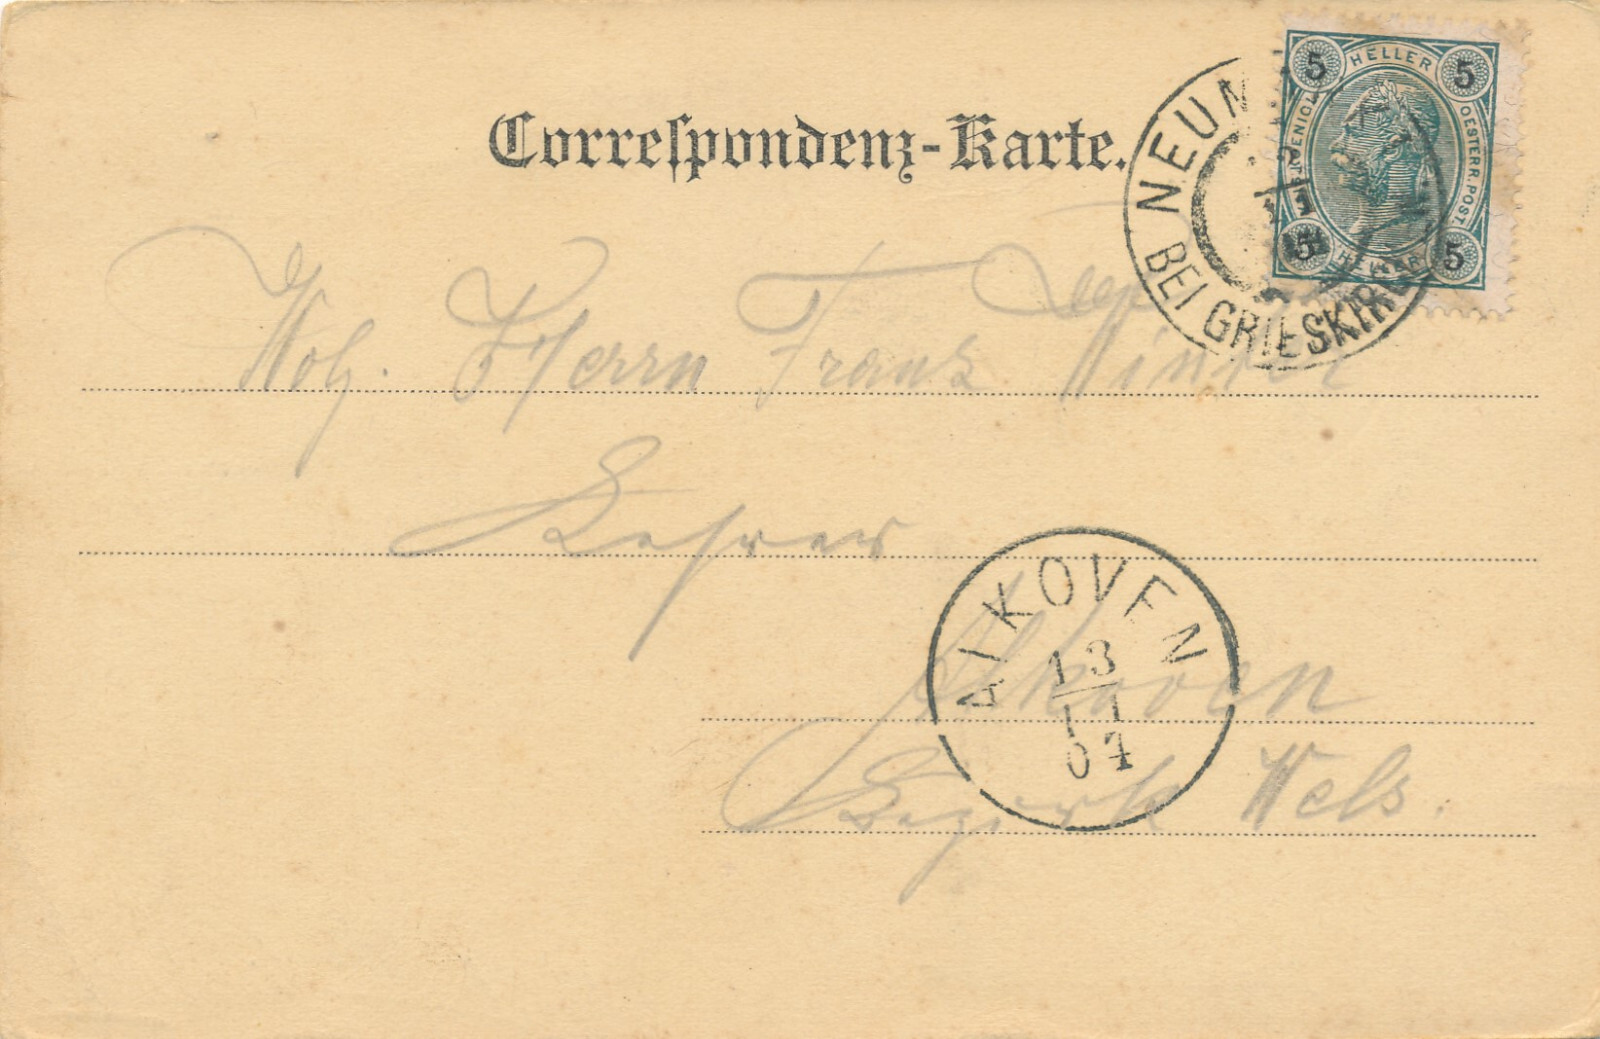 Correspondenz-Karte.
HELLER
5 5
OESTERR. POST.
5 5
HELLER
NEUM
BEI GRIESKIR
Herrn Franz Winter
Lehrer
Alkoven
Bezirk Wels.
ALKOVEN
13
11
04